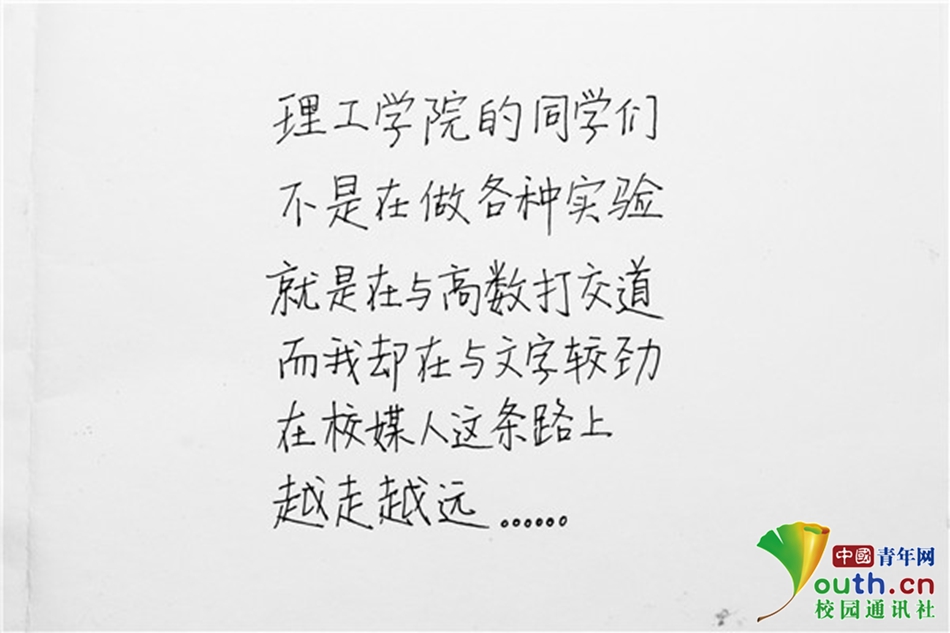 理工学院的同学们
不是在做各种实验
就是在与高数打交道
而我却在与文字较劲
在校媒人这条路上
越走越远......
中國青年网
youth.cn
校园通讯社